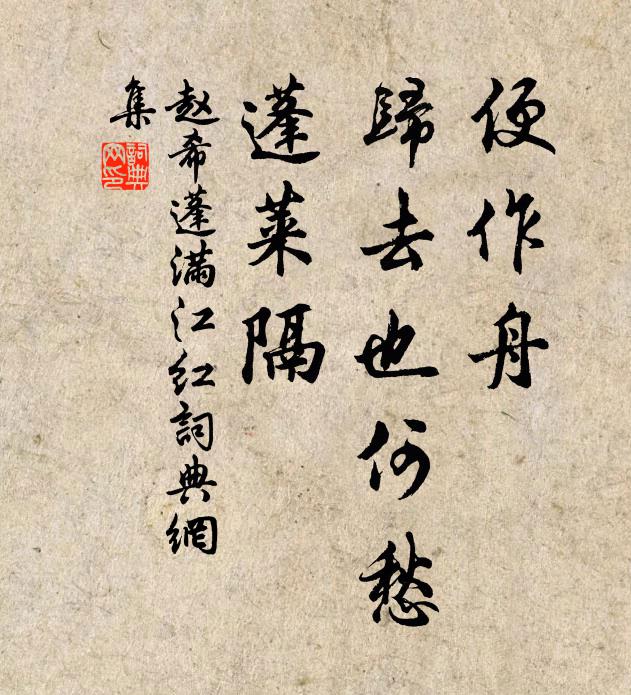 便作舟
歸去也何愁
蓬萊隔
赵希蓬滿江红詞典網
集
詞典
网印